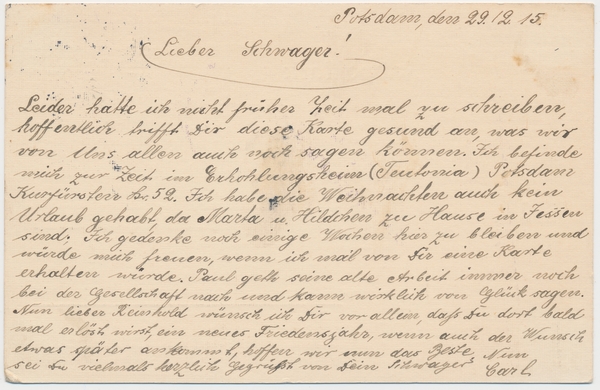 Potsdam, den 29.12.15.
Lieber Schwager!
Leider hatte ich nicht früher Zeit mal zu schreiben,
hoffentlich trifft Dir diese Karte gesund an, was wir
von Uns allen auch noch sagen können. Ich befinde
mich zur Zeit im Erhohlungsheim (Teutonia) Potsdam
Kurfürsten Str. 52. Ich habe die Weihnachten auch kein
Urlaub gehabt da Marta u. Hildchen zu Hause in Jessen
sind. Ich gedenke noch einige Wochen hier zu bleiben und
würde mich freuen, wenn ich mal von Dir eine Karte
erhalten würde. Paul geth seine alte Arbeit immer noch
bei der Gesellschaft nach und kann wirklich von Glück sagen.
Nun lieber Reinhold wünsch ich Dir vor allem, daß Du dort bald
mal erlöst wirst, ein neues Friedensjahr, wenn auch der Wunsch
etwas später ankommt, hoffen wir nun das Beste. Nun
sei Du vielmals herzlich gegrüßt von Dein Schwager Carl.